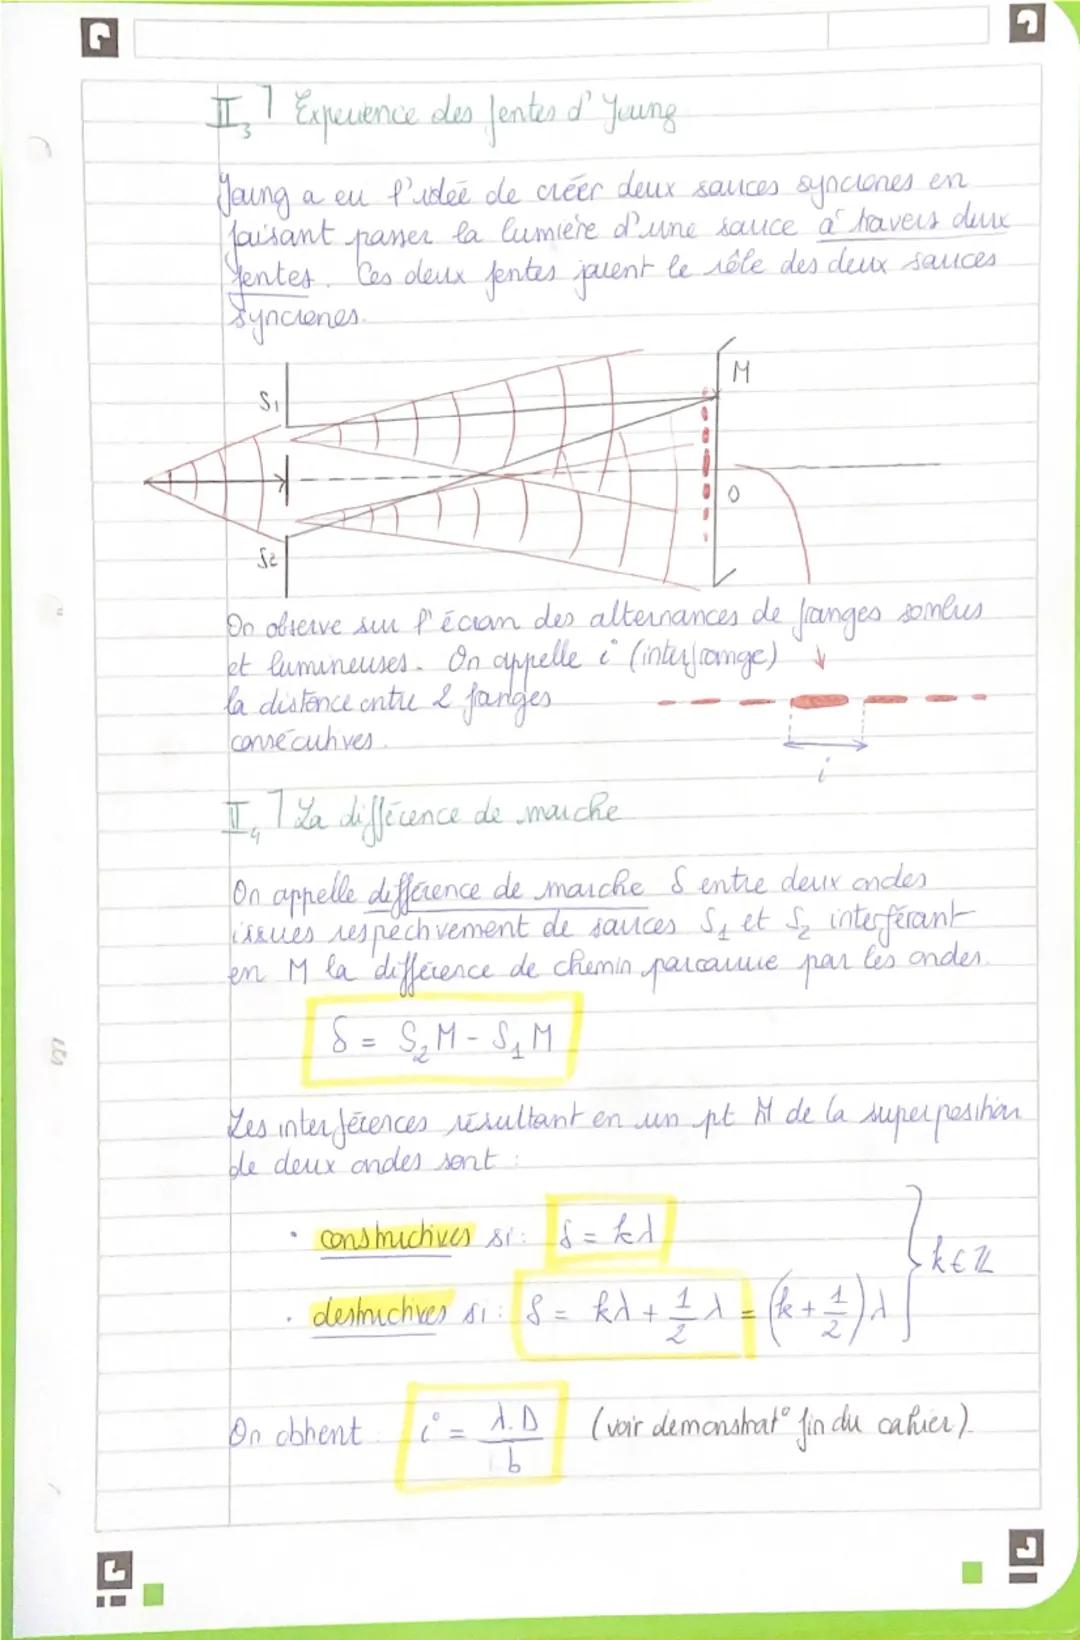 II,3 ] Experience des fentes d'Young
Young a eu l'idée de créer deux sources syncrones en
faisant passer la lumière d'une source à travers deux
fentes. Ces deux fentes jouent le rôle des deux sources
syncrones.
S1
M
O
S2
On observe sur l'écran des alternances de franges sombres
et lumineuses. On appelle i (interfrange)
la distance entre 2 franges
consécutives.
i
II,4 ] La différence de marche
On appelle différence de marche δ entre deux ondes
issues respectivement de sources S1 et S2 interférant
en M la différence de chemin parcourue par les ondes.
δ = S2M - S1M
Les interférences résultant en un pt M de la superposition
de deux ondes sont :
• constructives si : δ = kλ
• destructives si : δ = kλ + 1/2 λ = (k + 1/2) λ } k ∈ ℤ
On obtient : i = λ.D / b (voir demonstrat° fin du cahier).